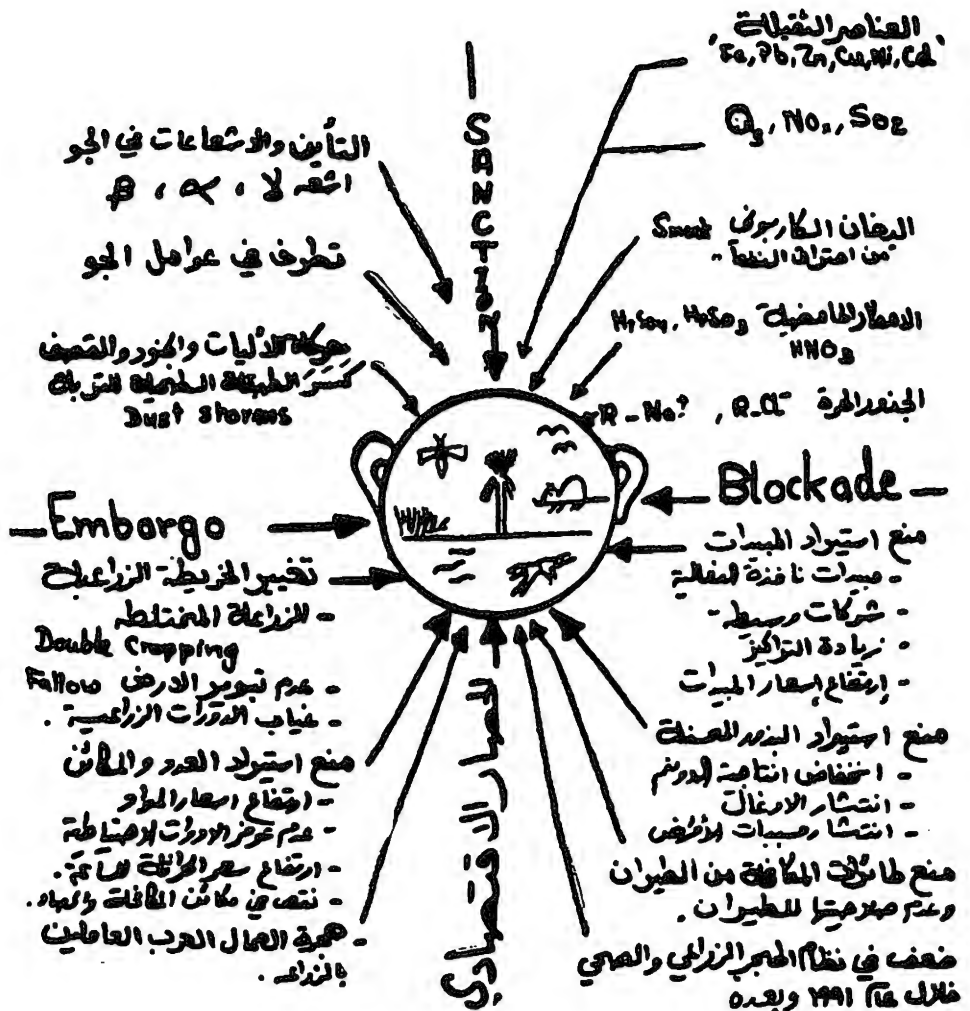 SANCTION
العناصر الثقيلة
Fe, Pb, Zn, Cu, Ni, Cd
O3, NOx, SO2
الدخان الكاربوني Smok
من احتراق النفط
الامطار الحامضية H2SO4, H2SO3
HNO3
الجذور الحرة R-Cl
التأين والاشعاعات في الجو
اشعه γ ، α ، β
تطرف في عوامل الجو
حركة الآليات والجنود والقصف
كَسَرَ الطبقة السطحية للتربة
Dust storems
Blockade
منع استيراد المبيدات
- مبيدات نافذة الفعالية
- شركات وسيطة
- زيادة التراكيز
- إرتفاع إسعار المبيدات
منع استيراد البذور المحسنة
- انخفاض انتاجية الدونم
- انتشار الادغال
- انتشار مسببات الأمراض
منع طائرات المكافحة من الطيران
وعدم صلاحيتها للطيران .
ضعف في نظام الحجر الزراعي والصحي
خلال عام 1991 وبعده
Emborgo
تغيير الخريطة الزراعية
- الزراعة المختلطه
Double Cropping
- عدم تبوير الارض Fallow
- غياب الدورات الزراعية .
منع استيراد العدد والمكائن
- ارتفاع اسعار المواد
- عدم توفر الادوات الاحتياطية
- ارتفاع سعر الحراثة
- نقص في مكائن المكافحة
- هجرة العمال العرب العاملين
بالزراعه .
الحصار الاقتصادي